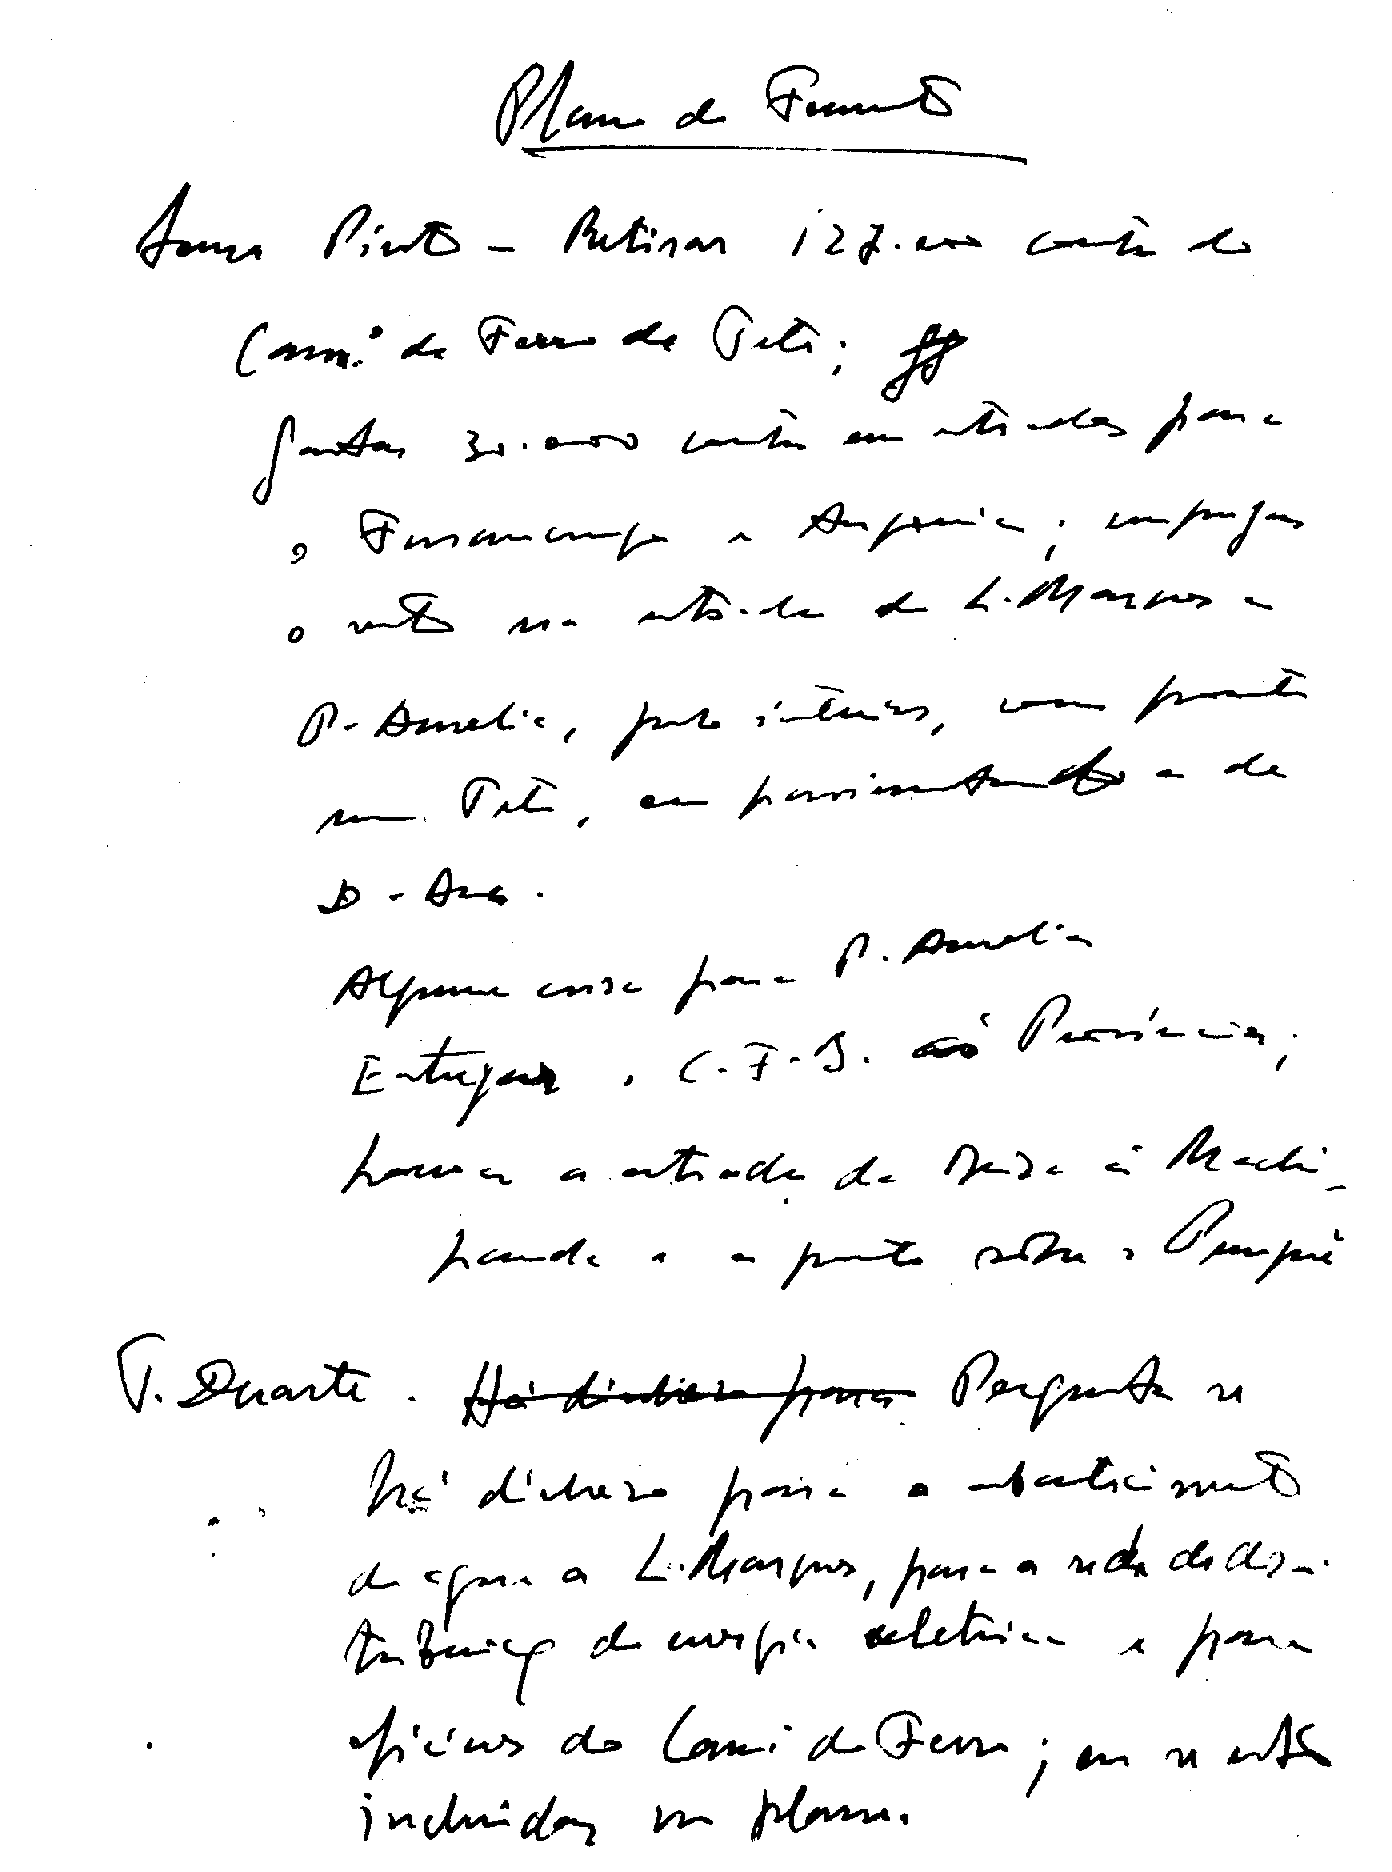 Plano de Fomento
Sousa Pinto – Retirar 127.000 contos do
Camº. de Ferro de Tete;
gastar 30.000 contos em estradas para
o Furancungo e Angonia; empregar
o resto na estrada de L. Marques a
P. Amelia, pelo interior, com ponte
em Tete, ou pavimentando a de
D. Ana.
Alguma coisa para P. Amelia
Entregar o C. F. B. à Provincia;
passar a estrada da Beira à Machi-
panda e a ponte sobre o Pungué
T. Duarte. Há dinheiro para Pergunta se
há dinheiro para o abastecimento
de agua a L. Marques, para a rede de dis-
tribuição de energia eletrica e para
oficinas do Camº de Ferro; ou se estão
incluidas no plano.